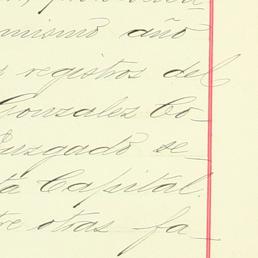 mismo año
registros del
Gonzalez Co-
Juzgado se-
ta Capital.
tre otras fa-